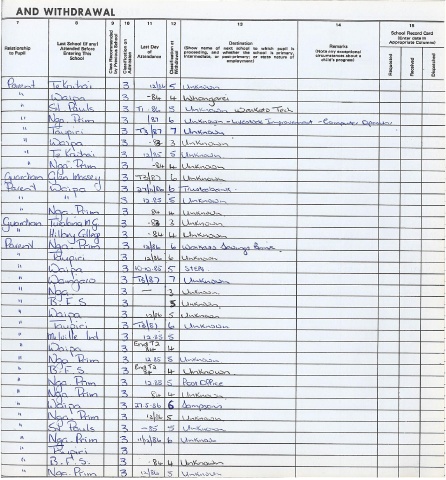 AND WITHDRAWAL
7 8 9 10 11 12 13 14 15
Relationship to Pupil
Last School (if any) Attended Before Entering This School
Class Recommended by Previous School
Classification on Admission
Last Day of Attendance
Classification at Withdrawal
Destination
(Show name of next school to which pupil is proceeding, and whether the school is primary, intermediate, or post-primary; or state nature of employment)
Remarks
(Note any exceptional circumstances about a child's progress)
School Record Card
(Enter date in Appropriate Columns)
Requested
Received
Despatched
Parent Te Kauhai 3 12/86 5 Unknown
" Waipa 3 -84 4 Whangarei
" St Pauls 3 11.86 5 Waikato Tech
" Nga. Prim 3 /87 6 Unknown - Livestock Improvement - Computer Operator
" Taupiri 3 T3/87 7 Unknown
" Waipa 3 3 Unknown
" Te Kauhai 3 12/85 5 Unknown
" Nga. Prim 3 -84 4 Unknown
Guardian Glen Massey 3 T3/87 6 Unknown
Parent Waipa 3 6 Trustbank
" " 3 12.85 5 Unknown
" Nga. Prim 3 84 4 Unknown
Guardian 3 3 Unknown
" Hillary College 3 -84 4 Unknown
Parent Nga Prim 3 12/86 6 Savings Bank
" Taupiri 3 12/86 6 Unknown
" Waipa 3 10-10-85 5 STEPS
" 3 T3/87 7 Unknown
" Nga. 3 — 3 Unknown
" B.F.S 3 5 Unknown
" Waipa 3 12/86 5 Unknown
" Taupiri 3 T3/87 6 Unknown
" Melville Int 3 12.85 5
" Waipa 3 End T2 84 4
" Nga Prim 3 12.85 5 Unknown
" B.F.S 3 End T2 84 4 Unknown
" Nga Prim 3 12.85 5 Post Office
" Nga Prim 3 84 4 Unknown
" Waipa 3 27.5.86 6 Sampsons
" Nga Prim 3 12/86 5 Unknown
" St Pauls 3 -85 5 Unknown
" Nga. Prim 3 6 Unknown
" Taupiri 3
" B.F.S. 3 -84 4 Unknown
" Nga Prim 3 12/86 5 Unknown